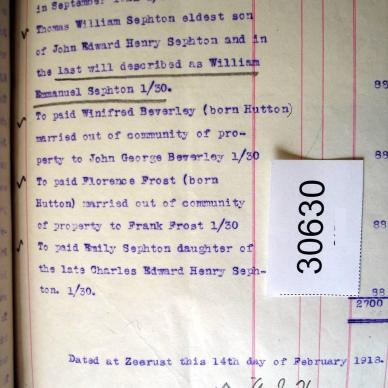 in September
Thomas William Sephton eldest son
of John Edward Henry Sephton and in
the last will described as William
Emmanuel Sephton 1/30.
88
To paid Winifred Beverley (born Hutton)
married out of community of pro-
perty to John George Beverley 1/30
88
To paid Florence Frost (born
Hutton) married out of community
of property to Frank Frost 1/30
88
To paid Emily Sephton daughter of
the late Charles Edward Henry Seph-
ton. 1/30.
88
2700
30630
Dated at Zeerust this 14th day of February 1918.